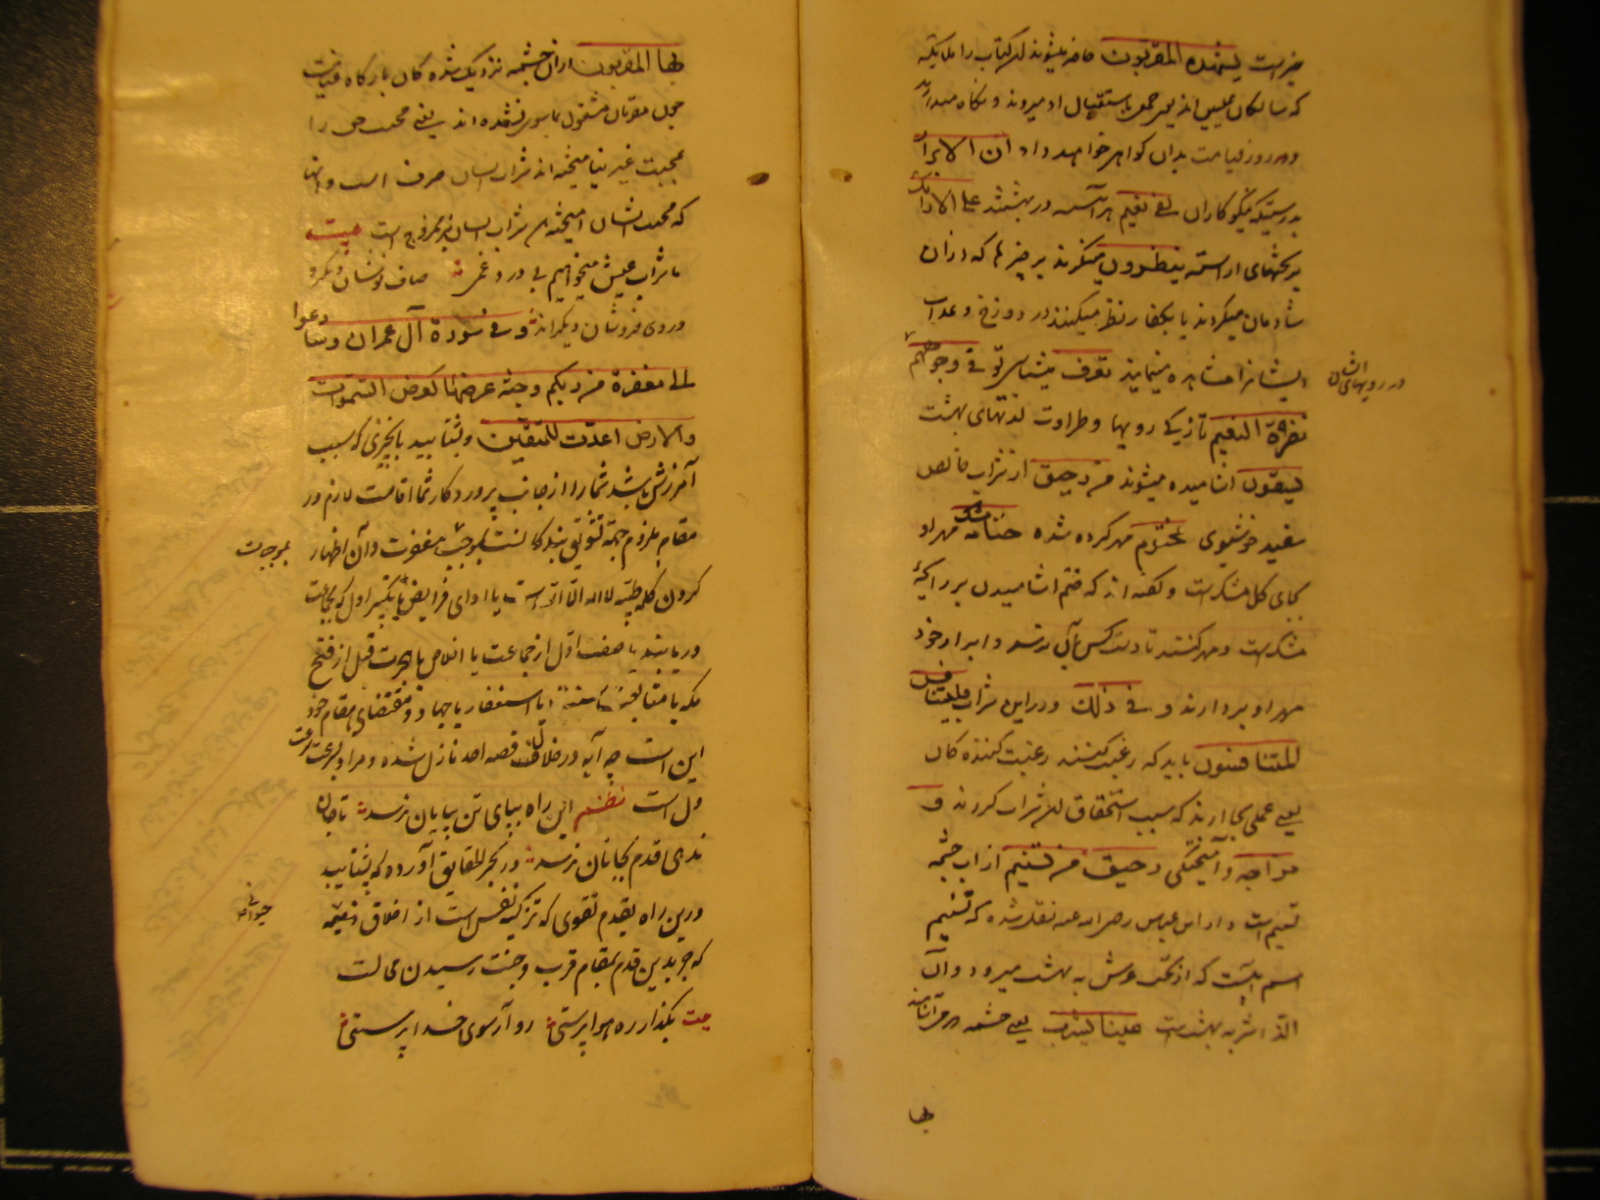 خیر است یشهده المقربون حاضر میشوند آن کتاب را ملایکه
که ساکنان علیین اند یعنی جمعی باستقبال او میروند و نگاه میدارند
و در روز قیامت بدان گواهی خواهند داد ان الابرار
بدرستیکه نیکوکاران لفی نعیم هر آینه در بهشتند علی الارائک
بر تختهای آراسته ینظرون مینگرند بر چیزها که از آن
شادمان میگردند یا بکفار نظر میکنند در دوزخ و عذاب
ایشانرا مشاهده مینمایند تعرف میشناسی تو فی وجوههم
در رویهای ایشان
نضرة النعیم تازیکی رویها و طراوت لذتهای بهشت
یسقون آشامیده میشوند من رحیق از شراب خالص
سفید خوشبوی مختوم مهر کرده شده ختامه مسک مهر او
بجای گل مشکست و گفته اند که ختم آشامیدن بر رایحهٔ
مشکست و مهر کنند تا دست کس بآن نرسد و ابرار خود
مهر او بردارند و فی ذلک و در این شراب فلیتنافس
المتنافسون باید که رغبت کنند رغبت کننده کان
یعنی عملی بجا آرند که سبب استحقاق آن شراب کردند و
مزاجه و آمیختگی رحیق من تسنیم از آب چشمه
تسنیم است و از ابن عباس رضی الله عنه نقل شده که تسنیم
اسم آبیست که از تحت عرش به بهشت میرود و آن
الذ اشربه بهشت است عینا یشرب یعنی چشمه که می آشامند
بها
بها المقربون از آن چشمه نزدیک شده کان بارگاه عنایت
چون مقربان مشغول بماسوی نشده اند یعنی محبت حق را
بمحبت غیر نیامیخته اند شراب ایشان صرف است و آنها
که محبت ایشان آمیخته است شراب ایشان نیز ممزوج است بیت
ما شراب عیش میخواهیم بی درد و غمی صاف نوشان دیگر و
دردی فروشان دیگراند و فی سورة آل عمران وسارعوا
الی مغفرة من ربکم وجنة عرضها کعرض السموات
والارض اعدت للمتقین و بشتابید بآنچیزی که سبب
آمرزش باشد شما را از جانب پروردگار شما اقامت لازم در
مقام ملزوم جهة تشویق بندگانست بموجب مغفرت و آن اظهار
بموجبات
کردن کلمه طیبه لا اله الا الله است یا ادای فرایض یا تکبیر اول که بجماعت
دریابند یا صف اول از جماعت یا اخلاص یا هجرت قبل از فتح
مکه یا متابعت سنت یا استغفار یا جهاد و مقتضای مقام خود
این است چه آیه در خلال قصه احد نازل شده و مراد بسرعت رفت
دل است نظم این راه بپای تن بپایان نرسد تا جان
ندهی قدم بجانان نرسد در بحر الحقایق آورده که بشتابید
درین راه بقدم تقوی که تزکیه نفس است از اخلاق ذمیمه
که جز بدین قدم بمقام قرب و جنت رسیدن محالست
بیت بگذار ره هوا پرستی رو آر سوی خدا پرستی